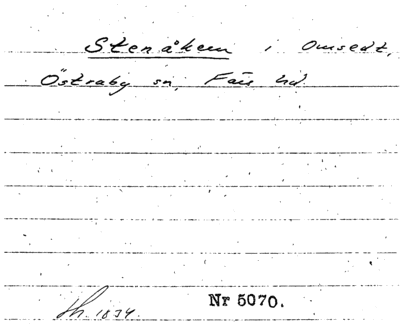 Stenåkern i Omsedt,
Östraby sn, Färs hd
Nr 5070.
1834